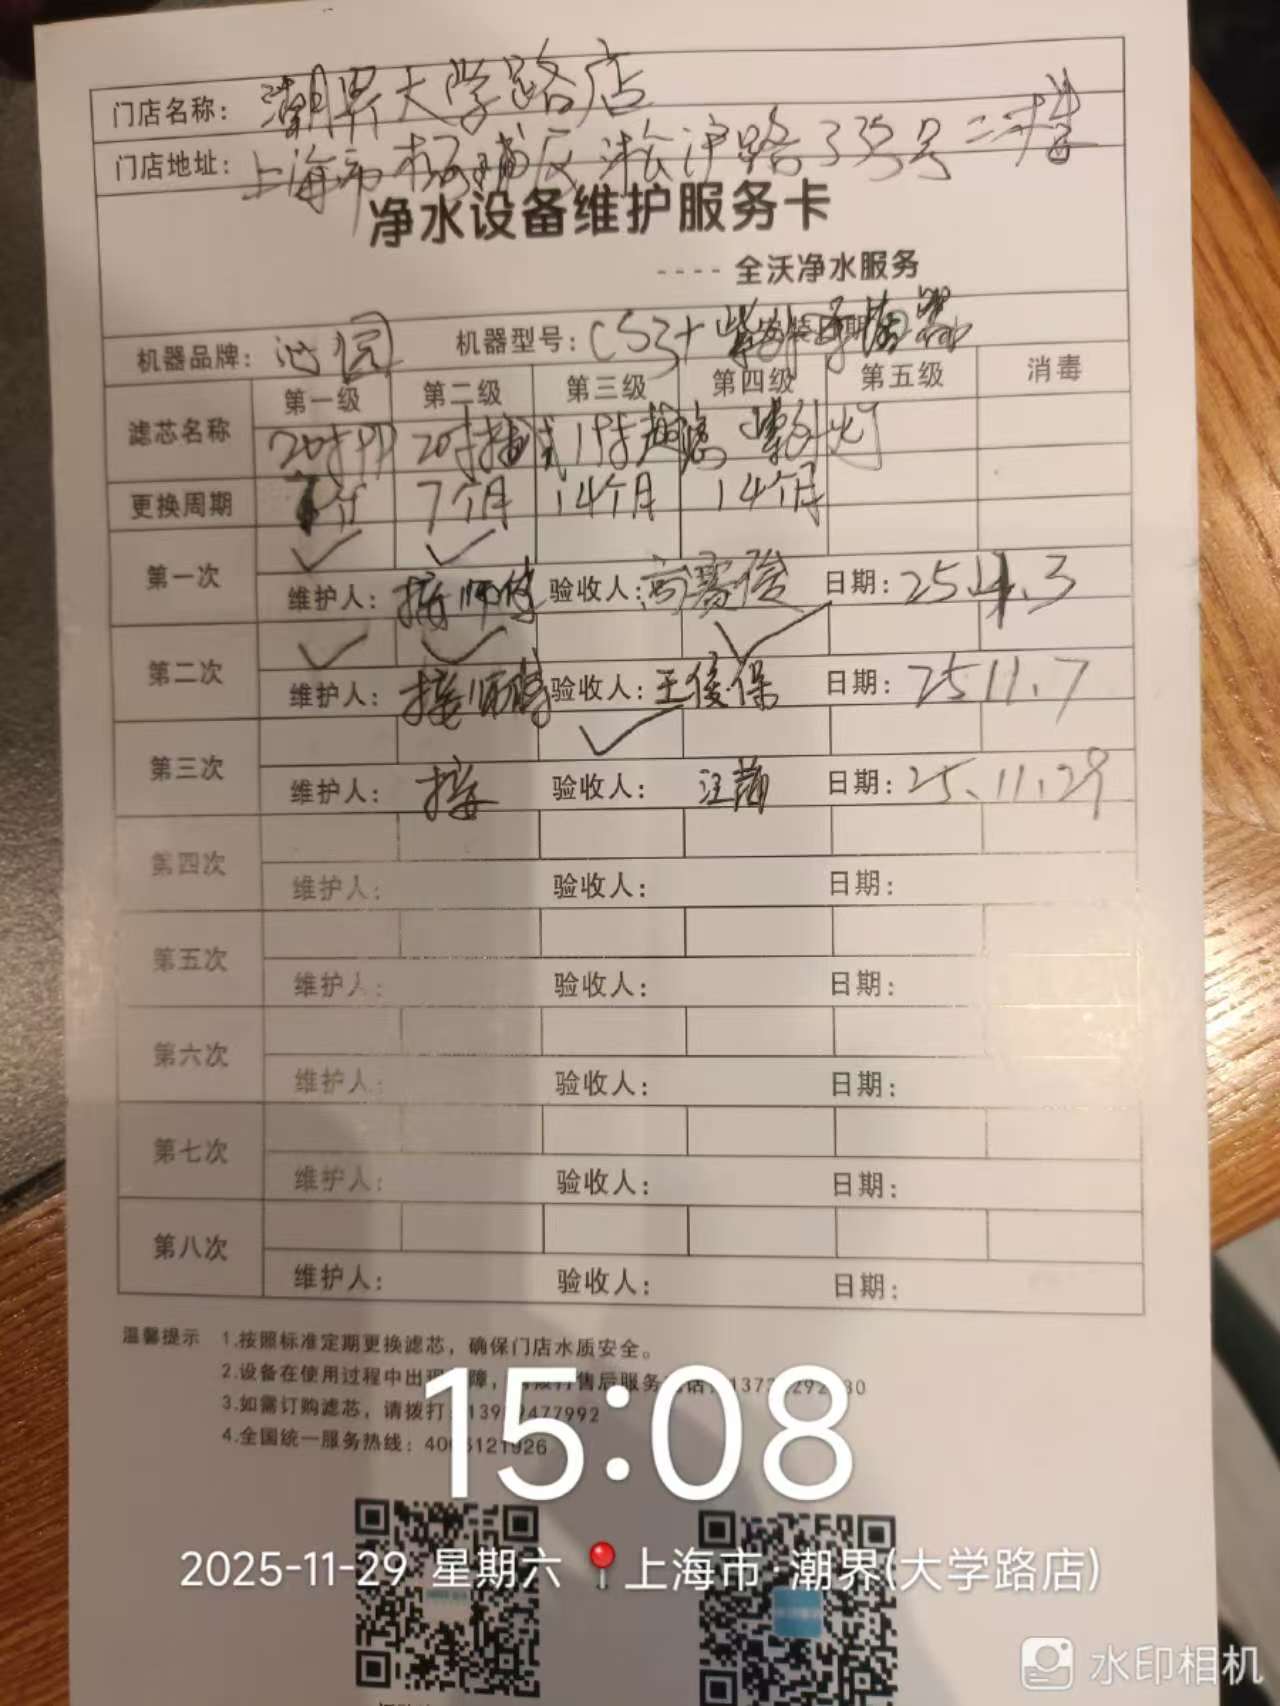 门店名称: 潮界大学路店
门店地址: 上海市杨浦区淞沪路335号二楼
净水设备维护服务卡
---- 全沃净水服务
机器品牌: 沁园 机器型号: CS3+紫外
第一级 第二级 第三级 第四级 第五级 消毒
滤芯名称 20寸PP 20寸 19寸超滤 紫外灯
更换周期 7个月 14个月 14个月
第一次 ✓ ✓
维护人: 师傅 验收人: 日期: 25.4.3
第二次 ✓ ✓ ✓
维护人: 师傅 验收人: 王俊保 日期: 25 11.7
第三次 ✓
维护人: 验收人: 汪 日期: 25.11.29
第四次
维护人: 验收人: 日期:
第五次
维护人: 验收人: 日期:
第六次
维护人: 验收人: 日期:
第七次
维护人: 验收人: 日期:
第八次
维护人: 验收人: 日期:
温馨提示 1.按照标准定期更换滤芯，确保门店水质安全。
2.设备在使用过程中出现 障, 售后服务
3.如需订购滤芯，请拨打
4.全国统一服务热线:
15:08
2025-11-29 星期六 📍上海市·潮界(大学路店)
水印相机